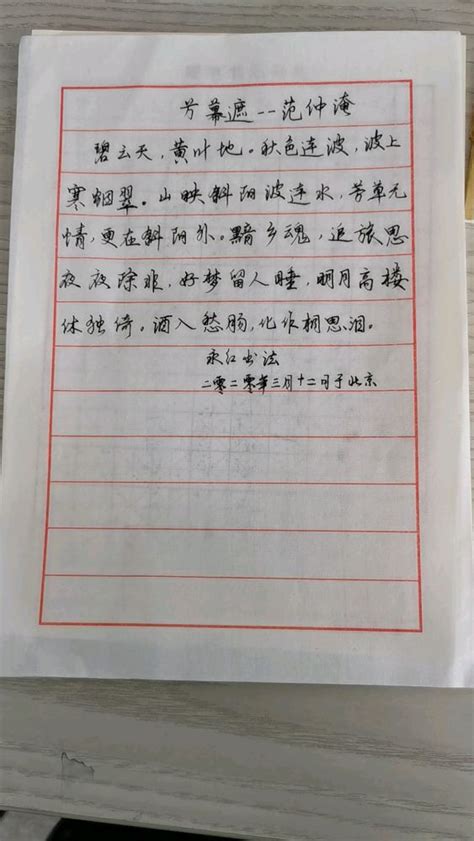 芳幕遮--范仲淹
碧云天,黄叶地。秋色连波,波上
寒烟翠。山映斜阳波连水,芳草无
情,更在斜阳外。黯乡魂,追旅思
夜夜除非,好梦留人睡,明月高楼
休独倚。酒入愁肠,化作相思泪。
永红书法
二零二零年三月十二日于北京